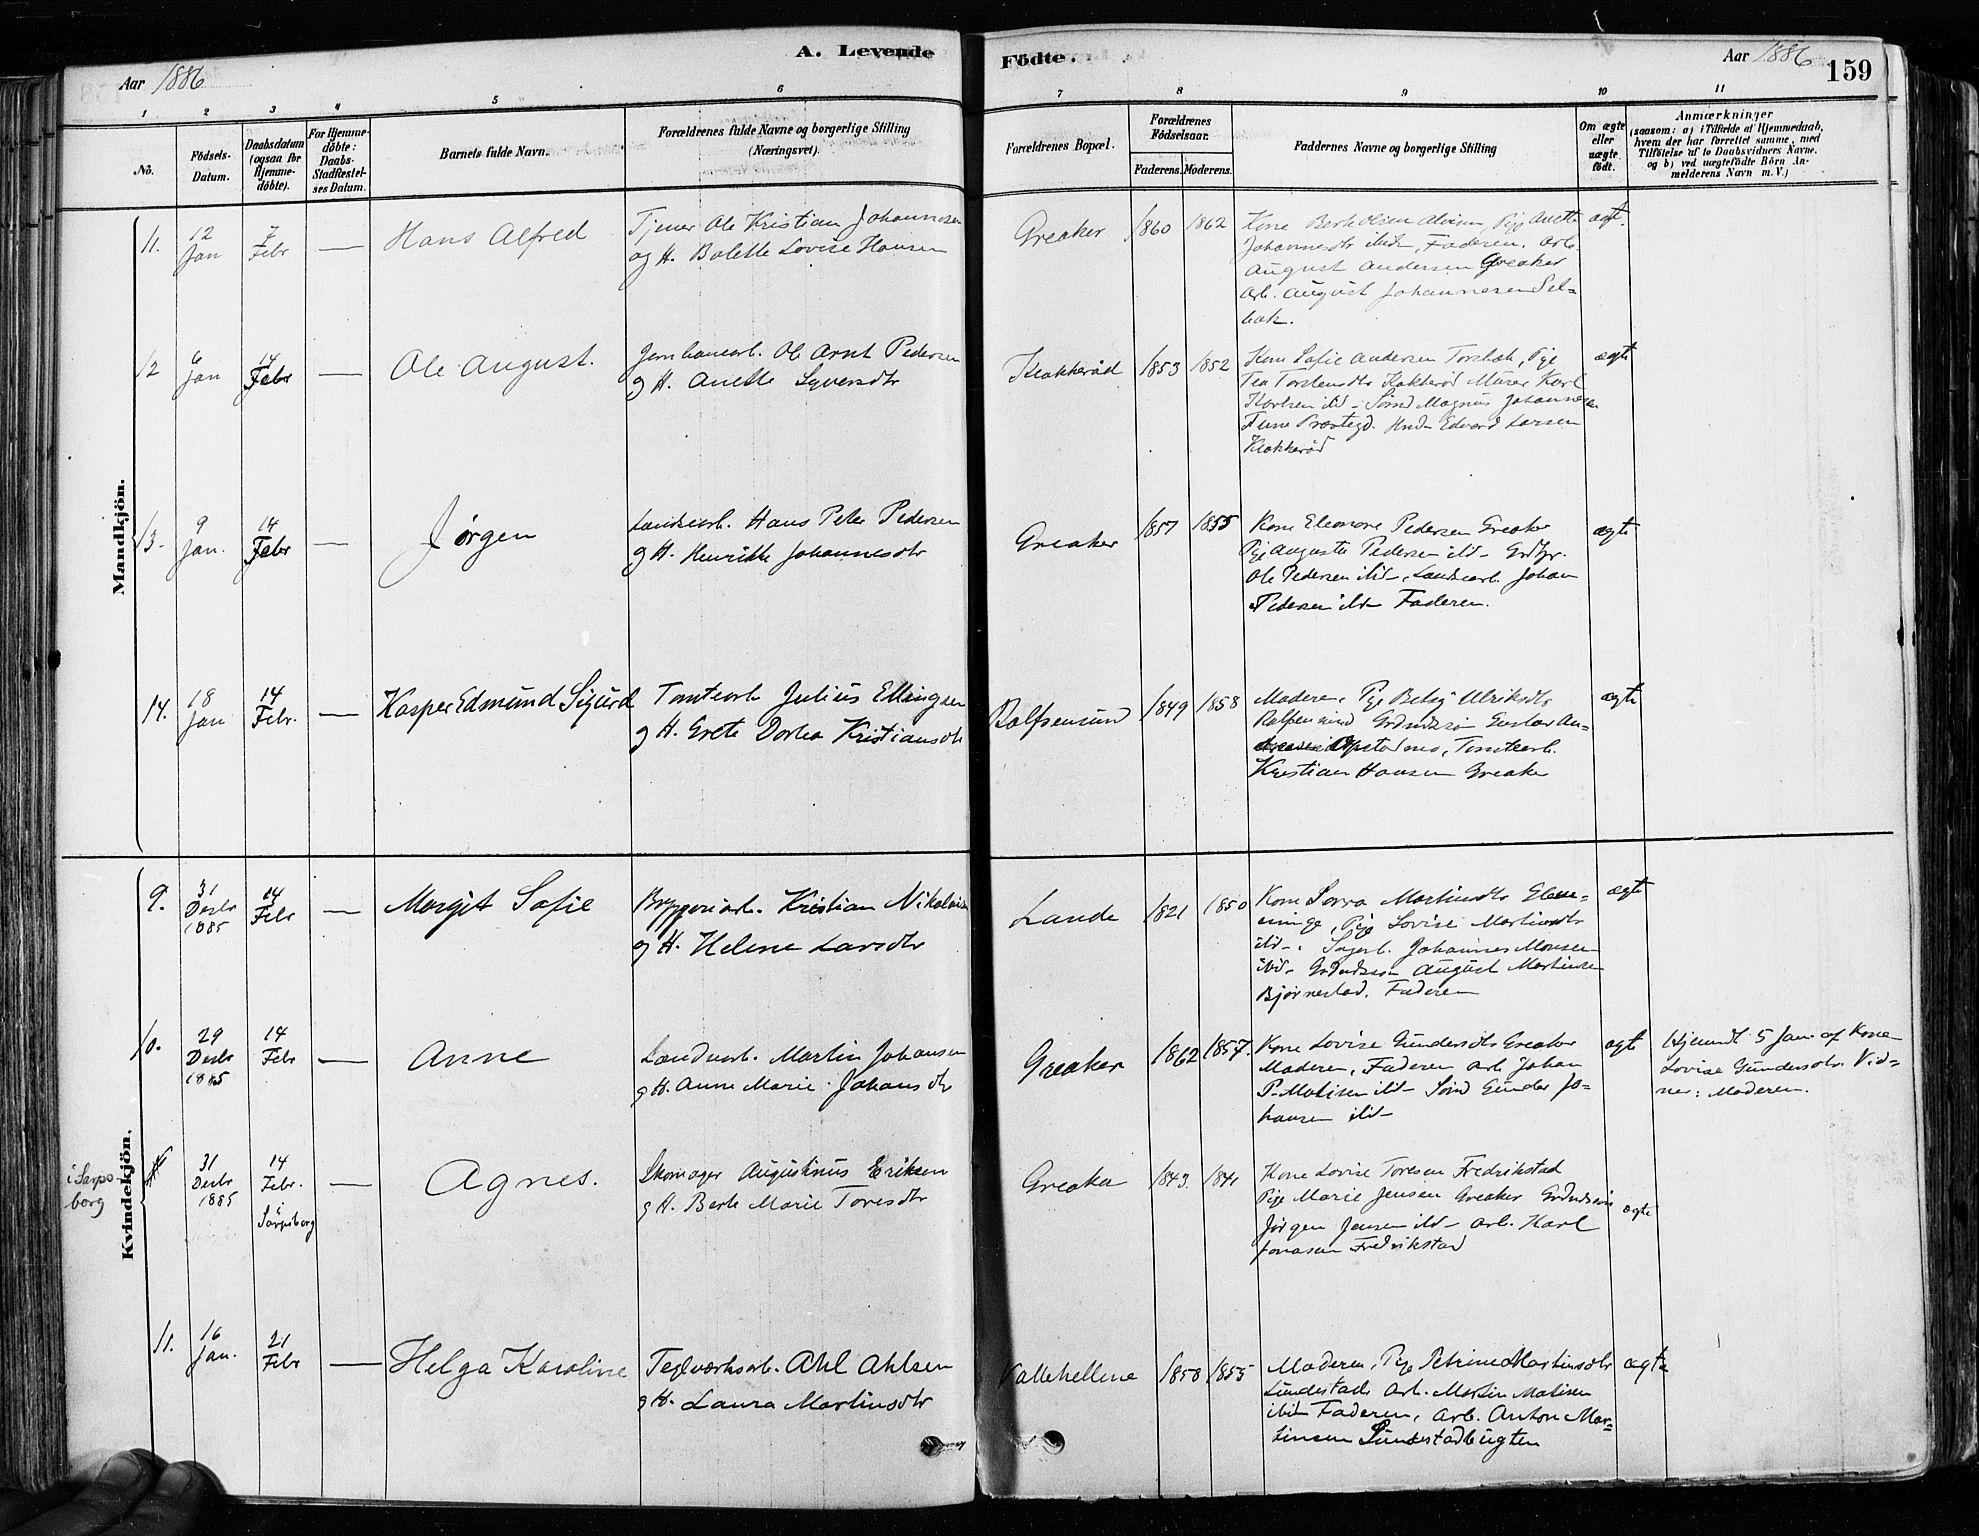 A. Levende
Födte.
Aar 1886
Aar 1886
159
1
2
3
4
5
6
7
8
9
10
11
No.
Födsels-
Datum.
Daabsdatum
(ogsaa for
Hjemme-
döbte).
For Hjemme-
döbte:
Daabs-
Stadfæstel-
ses Datum.
Barnets fulde Navn.
Forældrenes fulde Navne og borgerlige Stilling
(Næringsvei).
Forældrenes Bopæl.
Forældrenes
Födselsaar.
Faderens.
Moderens.
Faddernes Navne og borgerlige Stilling
Om ægte
eller
uægte
født.
Anmærkninger
(saasom: a) i Tilfælde af Hjemmedaab,
hvem der har forrettet samme, med
Tilföielse af to Daabsvidners Navne.
og b) ved uægtefödte Börn An-
melderens Navn m. V.)
Mandkjön.
11.
12
Jan
7
Febr
—
Hans Alfred
Tjener Ole Kristian Johannesen
og H. Bolette Lovise Hansen
Greaker
1860
1862
Kone Berte Olsen Alvim, Pige Anette
Johannesdtr ibid, Faderen, Arb.
August Andersen Greaker
Arb. August Johannesen Sel-
bak.
ægt.
12
6
Jan
14
Febr
—
Ole August.
Jernbanearb. Ole Arnt Pedersen
og H. Anette Syversdtr
Klokkerød
1853
1852
Kone Sofie Andersen Torsbæk, Pige
Tea Torstensdtr Klokkerød Murer Karl
Karlsen ibid- Smd Magnus Johannesen
Tune Prøstegd. Hmd- Edvard Larsen
Klokkerød
ægte
13.
9
Jan.
14
Febr
—
Jørgen
Landsarb. Hans Peter Pedersen
og H. Henrikke Johannesdtr
Greaker
1857
1855
Kone Eleonore Pedersen Greaker
Pige Augusta Pedersen ibd- Grdbr.
Ole Pedersen ibid-, Landsarb. Johan
Pedersen ibd- Faderen.
ægte
14.
18
Jan
14
Febr.
—
Kasper Edmund Sigurd
Tomtearb Julius Ellingsen
og H. Grete Dortea Kristiansdtr
Rolfsensund
1849
1858
Moderen, Pige Betsy Ulriksdtr
Rolfsensund Grdmdssøn Gustav An-
dreasen Opstadmo, Tomtearb.
Kristian Hansen Greaker
ægte
Kvindekjön.
9.
31
Decbr
1885
14
Febr
—
Margit Sofie
Bryggeriarb. Kristian Nikolaisen
og H. Helene Larsdtr
Lande
1821
1850
Kone Lovra Martinsdtr
Pige Lovise Martinsdtr
ibd-, Sagarb. Johannes Monsen
ibid- Grdmdssøn August Martinsen
Bjørnestad. Faderen
ægte
10.
29
Decbr
1885
14
Febr
—
Anne
Landsarb. Martin Johansen
og H. Anne Marie Johansdtr
Greaker
1862
1857.
Kone Lovise Gundersdtr Greaker
Moderen, Faderen Arb Johan
P. Matisen ibd- Smd Gunder Jo-
hansen ibd-
ægt
Hjemdt 5 Jan af Kone
Lovise Gundersdtr. Vid-
ner: Moderen.
i Sarps-
borg
31
Decbr
1885
14
Febr.
i
Sarpsborg
—
Agnes.
Skomager Augustinus Eriksen
og H. Berte Marie Toresdtr
Greaker
1843.
1841
Kone Lovise Toresen Fredrikstad
Pige Marie Jensen Greaker Grdmdssøn
Jørgen Jensen ibd- Arb. Karl
Jonasen Fredrikstad
ægte
11.
16
Jan.
21
Febr
—
Helga Karoline
Teglværksarb. Ahl Ahlsen
og H. Laura Martinsdtr
Vallehellene
1858
1855
Moderen, Pige Petrine Martinsdtr
Lundestad, Arb. Martin Matisen
ibid Faderen, Arb. Anton Mar-
tinsen Lundestadbugten
ægte